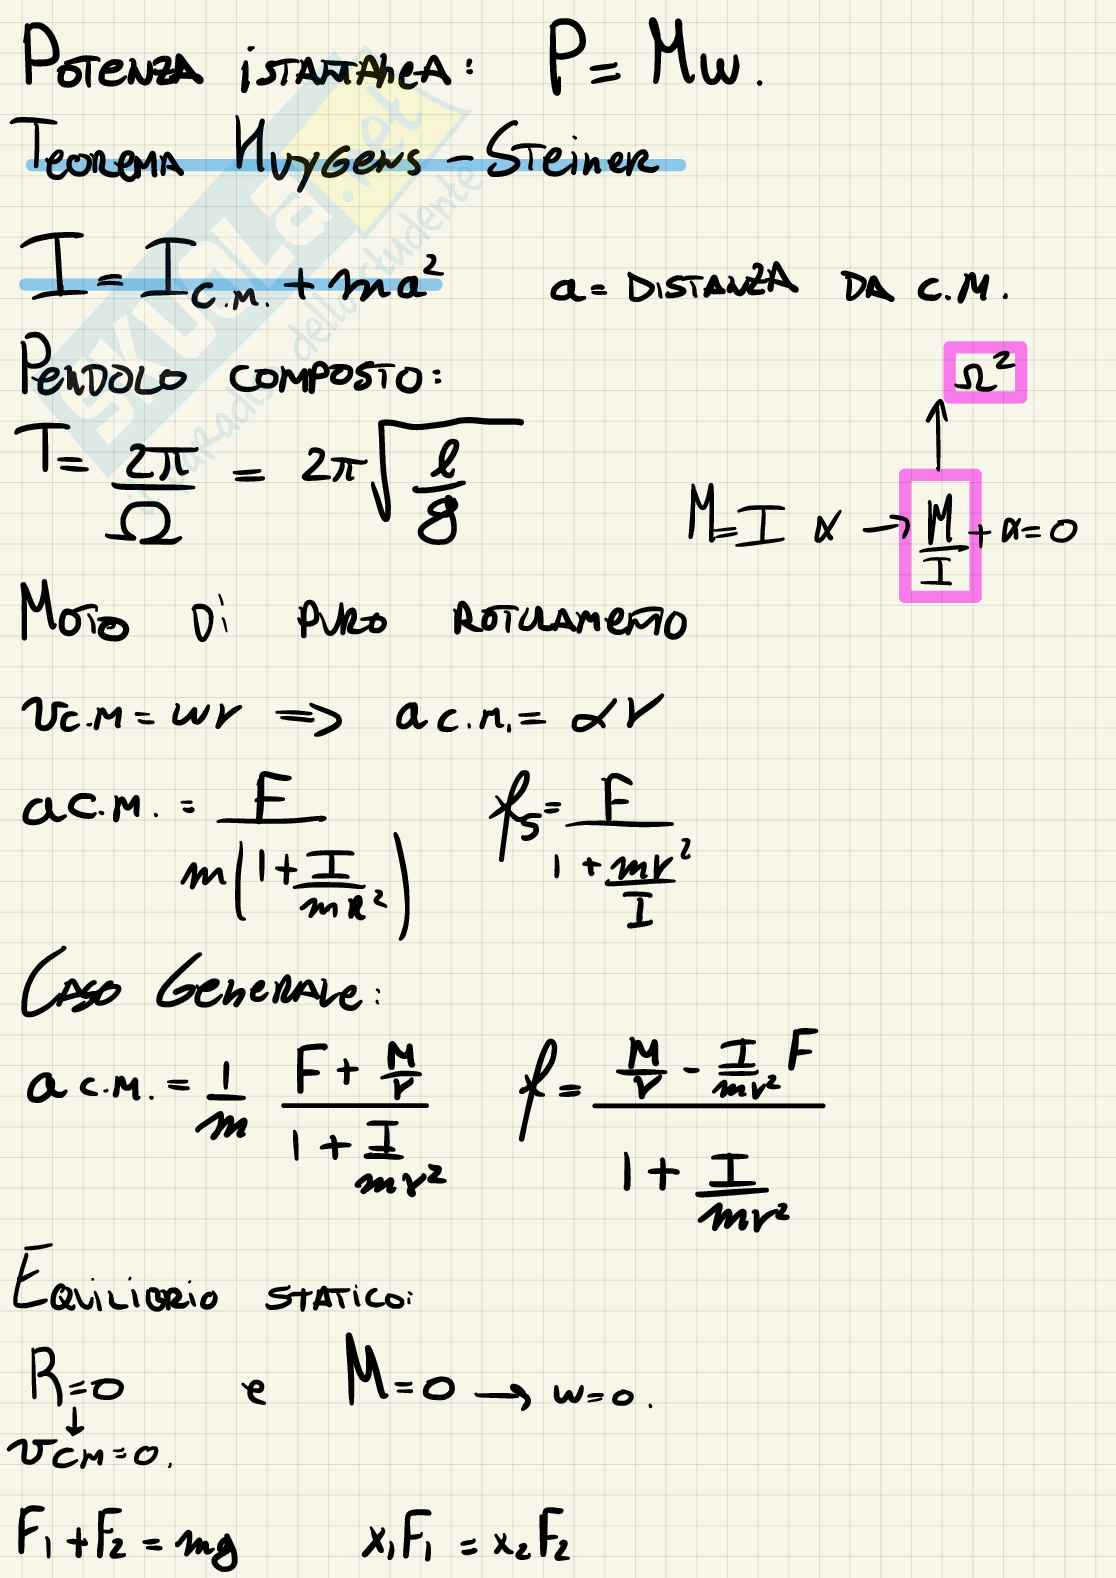 POTENZA ISTANTANEA: P = Mω.
TEOREMA HUYGENS - STEINER
I = I_C.M. + ma² a = DISTANZA DA C.M.
PENDOLO COMPOSTO:
Ω²
T = 2π/Ω = 2π√(l/g) M = I α → M/I + α = 0
MOTO DI PURO ROTOLAMENTO
v_C.M = ωr ⇒ a_C.M. = αr
a_C.M. = F/(m(1 + I/(mR²))) f_s = F/(1 + mr²/I)
CASO GENERALE:
a_C.M. = 1/m (F + M/r)/(1 + I/(mr²)) f = (M/r - I/(mr²) F)/(1 + I/(mr²))
EQUILIBRIO STATICO:
R = 0 e M = 0 → ω = 0.
↓
v_CM = 0.
F₁ + F₂ = mg x₁F₁ = x₂F₂
SKUOLA.net
dello studente